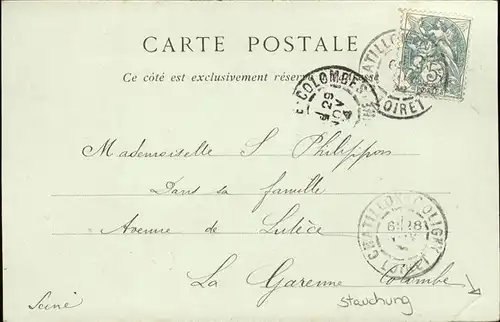 CARTE POSTALE
Ce côté est exclusivement réservé
CHATILLON LOIRET
COLOMBES 29 NOV
5
Mademoiselle S Philippon
Dans sa famille
Avenue de Lutèce
CHATILLON-COLIGNY LOIRET 28
La Garenne Colombe
Seine
Stauchung